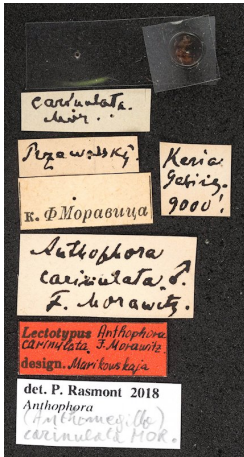 carinulata.
Mor.
Przewalsky.
Keria
Gebirg.
9000'.
к. Ф Моравица
Anthophora
carinulata. ♂
F. Morawitz.
Lectotypus Anthophora
carinulata F. Morawitz
design. Marikovskaja
det. P. Rasmont 2018
Anthophora
(Anthomegilla)
carinulata MOR.